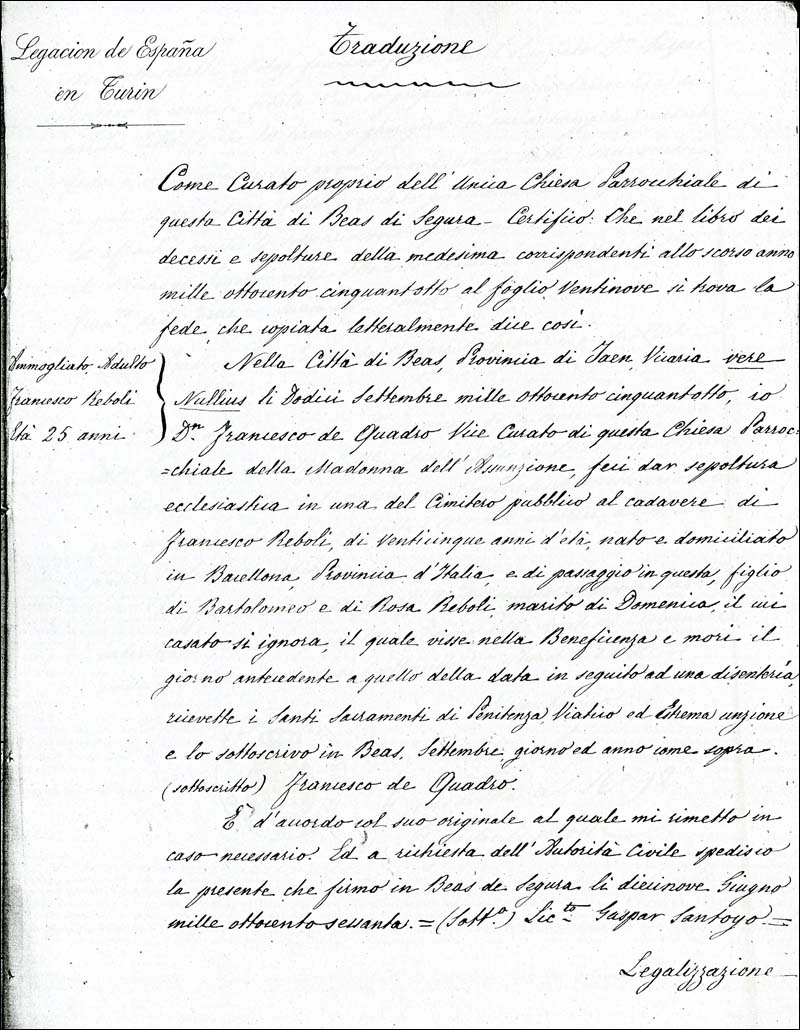 Legacion de España
en Turin
Traduzione
Come Curato proprio dell'Unica Chiesa Parrocchiale di
questa Città di Beas di Segura - Certifico: Che nel libro dei
decessi e sepolture della medesima corrispondenti allo scorso anno
mille ottocento cinquantotto al foglio Ventinove si trova la
fede, che copiata letteralmente dice così.
Ammogliato Adulto
Francesco Reboli
Età 25 anni.
Nella Città di Beas, Provincia di Jaen, Vicaria vere
Nullius li Dodici Settembre mille ottocento cinquantotto, io
Dn. Francesco de Quadro Vice Curato di questa Chiesa Parroc=
=chiale della Madonna dell'Assunzione, feci dar sepoltura
ecclesiastica in una del Cimitero pubblico al cadavere di
Francesco Reboli, di venticinque anni d'età, nato e domiciliato
in Barellona, Provincia d'Italia, e di passaggio in questa, figlio
di Bartolomeo e di Rosa Reboli, marito di Domenica, il cui
casato si ignora, il quale visse nella Beneficenza e morì il
giorno antecedente a quello della data in seguito ad una disenteria,
ricevette i Santi Sacramenti di Penitenza, Viatico ed Estrema unzione
e lo sottoscrivo in Beas, Settembre, giorno ed anno come sopra.
(sottoscritto) Francesco de Quadro.
E' d'accordo col suo originale al quale mi rimetto in
caso necessario. Ed a richiesta dell'Autorità Civile spedisco
la presente che firmo in Beas de Segura li diecinove Giugno
mille ottocento sessanta. = (Sotto.) Licto. Gaspar Santoyo =
Legalizzazione